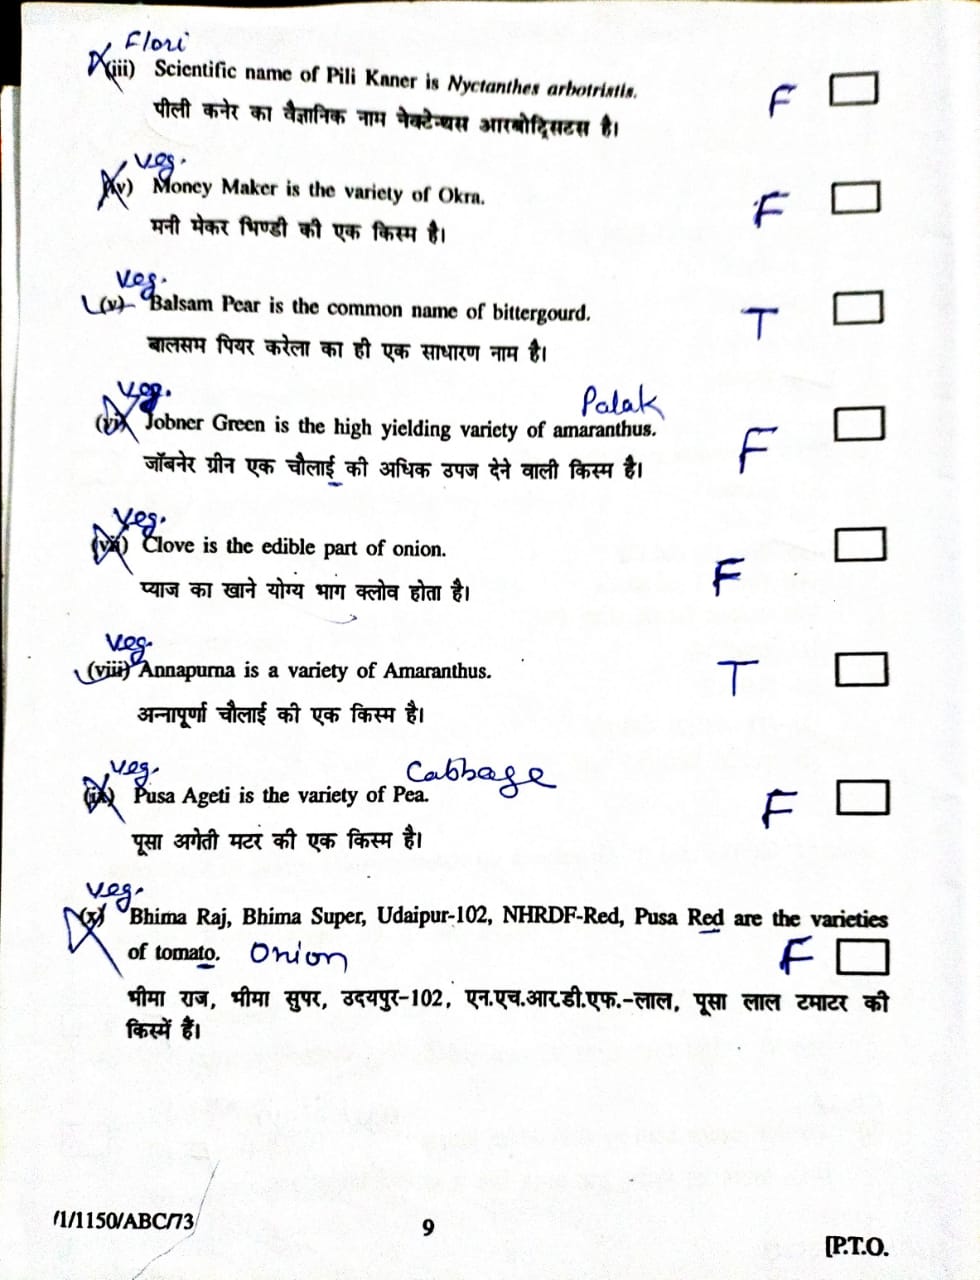 Flori
(iii) Scientific name of Pili Kaner is Nyctanthes arbotristis.
F
पीली कनेर का वैज्ञानिक नाम नेक्टेन्थस आरबोट्रिसटस है।
Veg.
(iv) Money Maker is the variety of Okra.
F
मनी मेकर भिण्डी की एक किस्म है।
Veg.
(v) Balsam Pear is the common name of bittergourd.
T
बालसम पियर करेला का ही एक साधारण नाम है।
Veg. Palak
(vi) Jobner Green is the high yielding variety of amaranthus.
F
जॉबनेर ग्रीन एक चौलाई की अधिक उपज देने वाली किस्म है।
Veg.
(vii) Clove is the edible part of onion.
F
प्याज का खाने योग्य भाग क्लोव होता है।
Veg.
(viii) Annapurna is a variety of Amaranthus.
T
अन्नापूर्णा चौलाई की एक किस्म है।
Veg. Cabbage
(ix) Pusa Ageti is the variety of Pea.
F
पूसा अगेती मटर की एक किस्म है।
Veg.
(x) Bhima Raj, Bhima Super, Udaipur-102, NHRDF-Red, Pusa Red are the varieties
of tomato. Onion F
भीमा राज, भीमा सुपर, उदयपुर-102, एन.एच.आर.डी.एफ.-लाल, पूसा लाल टमाटर की
किस्में हैं।
/1/1150/ABC/73
9
[P.T.O.